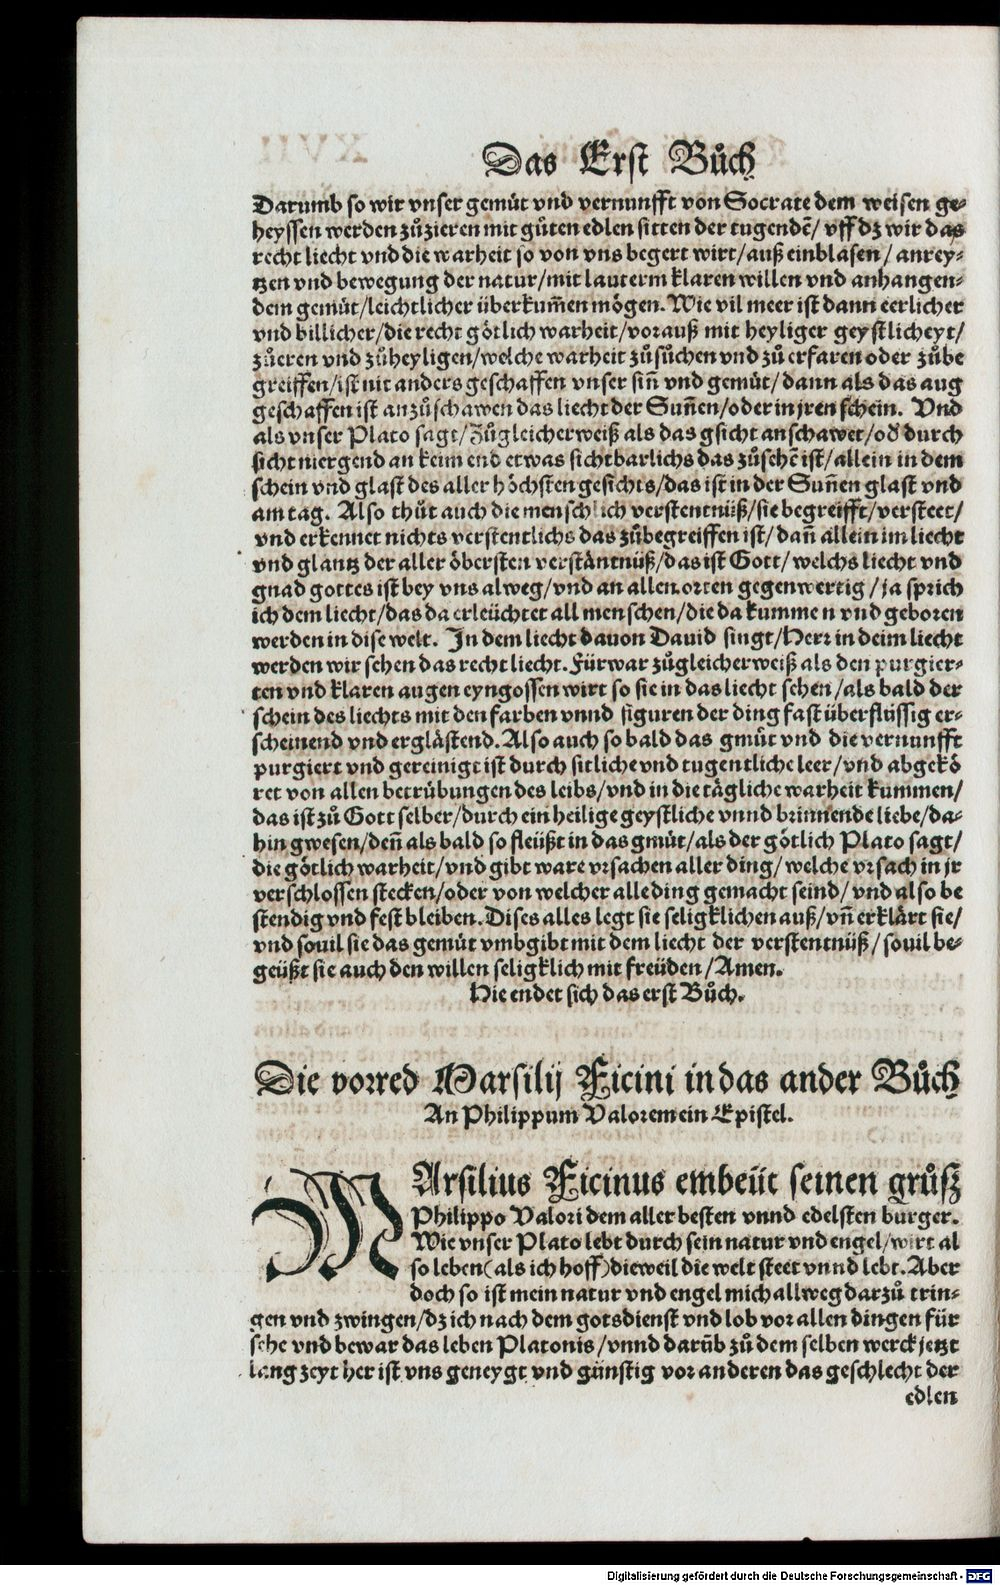 Das Erst Bůch
Darumb so wir vnser gemüt vnd vernunfft von Socrate dem weisen ge⸗
heyssen werden zůzieren mit gůten edlen sitten der tugendẽ/ vff dz wir das
recht liecht vnd die warheit so von vns begert wirt/auß einblasen/ anrey⸗
tzen vnd bewegung der natur/mit lauterm klaren willen vnd anhangen⸗
dem gemüt/leichtlicher überkum̃en mögen. Wie vil meer ist dann eerlicher
vnd billicher/die recht götlich warheit/vorauß mit heyliger geystlicheyt/
zůeren vnd zůheyligen/welche warheit zůsůchen vnd zů erfaren oder zůbe
greiffen/ist nit anders geschaffen vnser sin̄ vnd gemüt/dann als das aug
geschaffen ist anzůschawen das liecht der Sun̄en/oder in jren schein. Vnd
als vnser Plato sagt/Zůgleicherweiß als das gsicht anschawet/od̕ durch
sicht niergend an keim end etwas sichtbarlichs das zůsehẽ ist/allein in dem
schein vnd glast des aller höchsten gesichts/das ist in der Sun̄en glast vnd
am tag. Also thůt auch die menschlich verstentnüß/sie begreifft/versteet/
vnd erkennet nichts verstentlichs das zůbegreiffen ist/dan̄ allein im liecht
vnd glantz der aller öbersten verstäntnüß/das ist Gott/welchs liecht vnd
gnad gottes ist bey vns alweg/vnd an allen orten gegenwertig/ja sprich
ich dem liecht/das da erleüchtet all menschen/die da kummen vnd geboren
werden in dise welt. In dem liecht dauon Dauid singt/Herr in deim liecht
werden wir sehen das recht liecht. Fürwar zůgleicherweiß als den purgier⸗
ten vnd klaren augen eyngossen wirt so sie in das liecht sehen/als bald der
schein des liechts mit den farben vnnd figuren der ding fast überflüssig er⸗
scheinend vnd erglästend. Also auch so bald das gmüt vnd die vernunfft
purgiert vnd gereinigt ist durch sitliche vnd tugentliche leer/vnd abgekö
ret von allen betrübungen des leibs/vnd in die tägliche warheit kummen/
das ist zů Gott selber/durch ein heilige geystliche vnnd brinnende liebe/da⸗
hin gwesen/den̄ als bald so fleüßt in das gmüt/als der götlich Plato sagt/
die götlich warheit/vnd gibt ware vrsachen aller ding/welche vrsach in jr
verschlossen stecken/oder von welcher alle ding gemacht seind/vnd also be
stendig vnd fest bleiben. Dises alles legt sie seligklichen auß/vn̄ erklärt sie/
vnd souil sie das gemüt vmbgibt mit dem liecht der verstentnüß/souil be⸗
geüßt sie auch den willen seligklich mit freüden/Amen.
Hie endet sich das erst Bůch.
Die vorred Marsilij Ficini in das ander Bůch
An Philippum Valorem ein Epistel.
MArsilius Ficinus embeüt seinen grůsz
Philippo Valori dem aller besten vnnd edelsten burger.
Wie vnser Plato lebt durch sein natur vnd engel/wirt al
so leben(als ich hoff)dieweil die welt steet vnnd lebt. Aber
doch so ist mein natur vnd engel mich allweg darzů trin⸗
gen vnd zwingen/dz ich nach dem gotsdienst vnd lob vor allen dingen für
sehe vnd bewar das leben Platonis/vnnd darũb zů dem selben werck jetzt
lang zeyt her ist vns geneygt vnd günstig vor anderen das geschlecht der
edlen
Digitalisierung gefördert durch die Deutsche Forschungsgemeinschaft - DFG